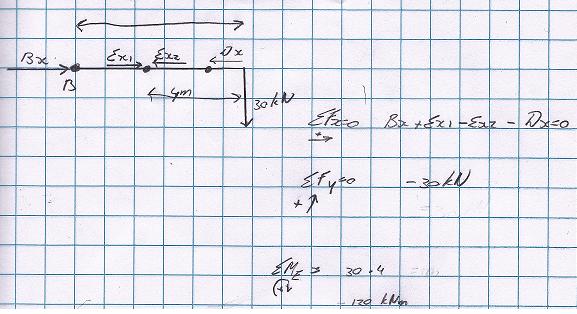 Bx Σx1 Σx2 Dx
B
4m
30 kN
ΣFx=0 Bx + Σx1 - Σx2 - Dx = 0
+
ΣFy=0 -30 kN
+
ΣME = 30 · 4
- 120 kNm